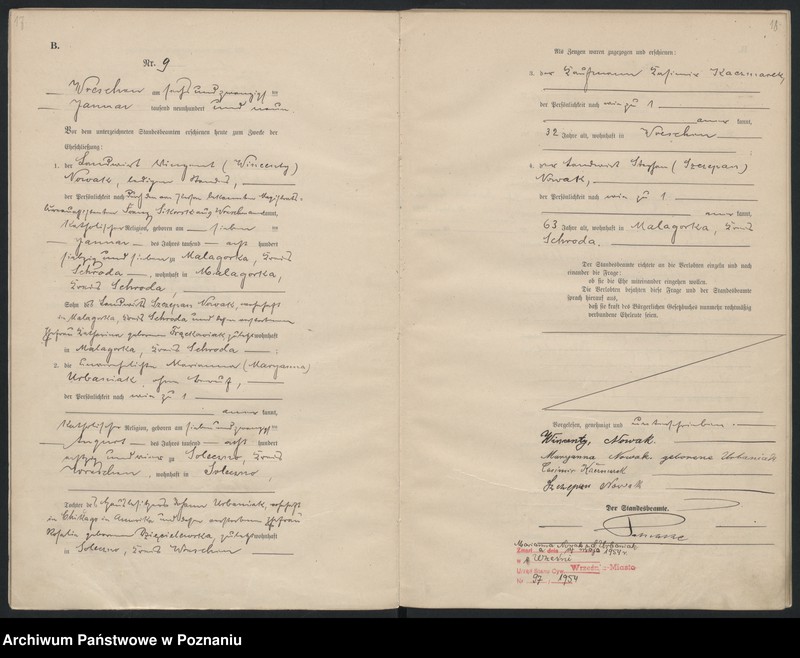 17
B.
Nr. 9
Wreschen am sechsundzwanzigsten
Januar tausend neunhundert und neun
Vor dem unterzeichneten Standesbeamten erschienen heute zum Zwecke der
Eheschließung:
1. der Landwirt Vinzent (Wincenty)
Nowak, ledigen Standes,
der Persönlichkeit nach durch den am Stelle bekannten
Franz Sikorski aus Wreschen kannt,
katholischer Religion, geboren am sieben ten
Januar des Jahres tausend acht hundert
siebzig und sieben zu Malagorka, Kreis
Schroda, wohnhaft in Malagorka,
Kreis Schroda,
Sohn des Landwirts Szczepan Nowak, wohnhaft
in Malagorka, Kreis Schroda und dessen verstorbenen
Ehefrau Katharina geborenen zuletzt wohnhaft
in Malagorka, Kreis Schroda
2. die unverehelichte Marianna (Maryanna)
Urbaniak, ohne Beruf,
der Persönlichkeit nach wie zu 1
kannt,
katholischer Religion, geboren am siebenundzwanzigsten
August des Jahres tausend acht hundert
achtzig und neun zu Soleczno, Kreis
Wreschen, wohnhaft in Soleczno,
Tochter des Johann Urbaniak, wohnhaft
in Chikago in Amerika und dessen verstorbenen Ehefrau
Rosalie geborenen zuletzt wohnhaft
in Soleczno, Kreis Wreschen
18
Als Zeugen waren zugezogen und erschienen:
3. der Kaufmann Kasimir Kaczmarek,
der Persönlichkeit nach wie zu 1
kannt,
32 Jahre alt, wohnhaft in Wreschen
4. der Landwirt Stephan (Szczepan)
Nowak,
der Persönlichkeit nach wie zu 1
kannt,
63 Jahre alt, wohnhaft in Malagorka, Kreis
Schroda.
Der Standesbeamte richtete an die Verlobten einzeln und nach
einander die Frage:
ob sie die Ehe miteinander eingehen wollen.
Die Verlobten bejahten diese Frage und der Standesbeamte
sprach hierauf aus,
daß sie kraft des Bürgerlichen Gesetzbuchs nunmehr rechtmäßig
verbundene Eheleute seien.
Vorgelesen, genehmigt und unterschrieben.
Wincenty Nowak
Maryanna Nowak geborene Urbaniak
Casimir Kaczmarek
Szczepan Nowak
Der Standesbeamte.
Marianna Nowak z d. Urbaniak
Zmarł a dnia 14 maja 1954 r.
w Wrześni
Urząd Stanu Cyw. Wrześn. - Miasto
Nr 97 1954
Archiwum Państwowe w Poznaniu